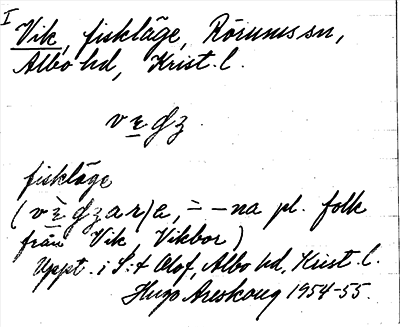 I
Vik, fiskläge, Rörums sn,
Albo hd, Krist. l.
fiskläge
-na pl. folk
från Vik, Vikbor)
Uppt. i S:t Olof, Albo hd, Krist. l.
Hugo Areskoug 1954-55.